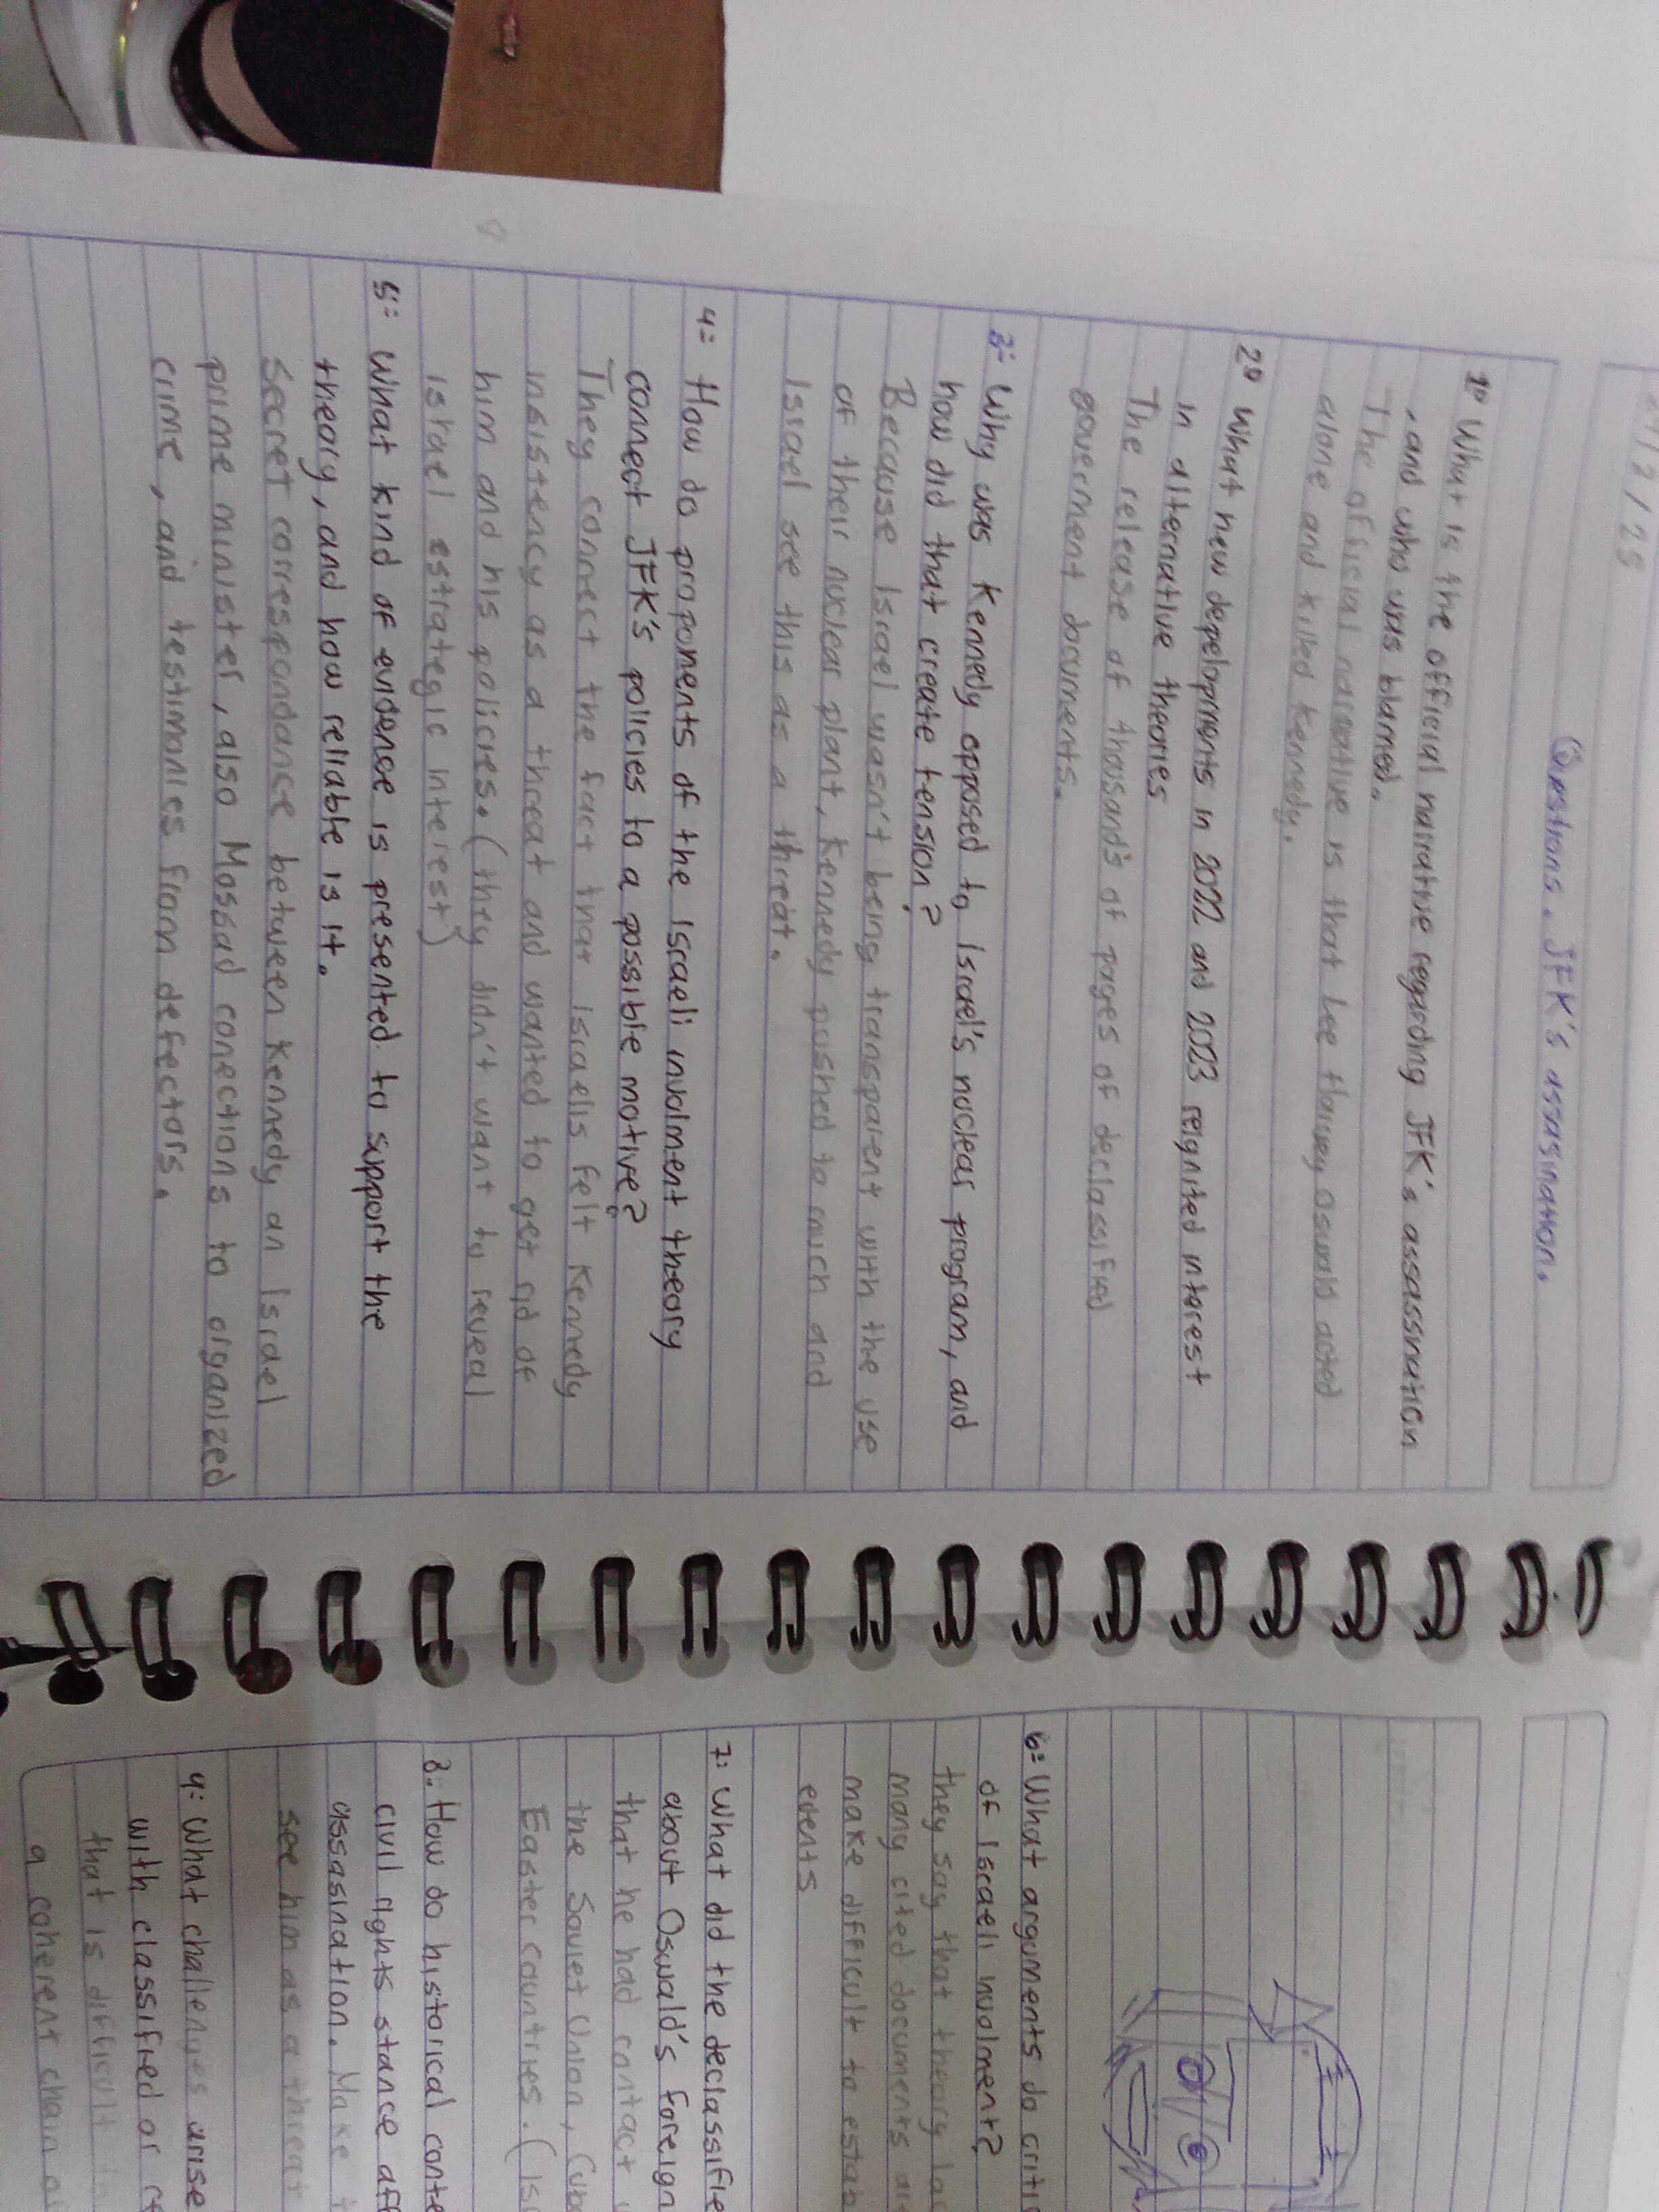 21/2/25
Questions. JFK's assasination.
1º What is the official narrative regarding JFK's assassination
, and who was blamed.
The official narrative is that Lee Harvey Oswald acted
alone and killed Kennedy.
2º What new depelopments in 2022 and 2023 reignited interest
in alternative theories
The release of thousand's of pages of declassified
government documents.
3= Why was Kennedy opposed to Israel's nuclear program, and
how did that create tension?
Because Israel wasn't being transparent with the use
of their nuclear plant, Kennedy pushed to much and
Israel see this as a threat.
4= How do proponents of the Israeli involment theory
connect JFK's policies to a possible motive?
They connect the fact that Israelis felt Kennedy
insistency as a threat and wanted to get rid of
him and his policies. (they didn't want to reveal
israel estrategic interest)
5= What kind of evidence is presented to support the
theory, and how reliable is it.
Secret correspondance between Kennedy an Israel
prime minister, also Mossad conections to organized
crime, and testimonies from defectors.
6= What arguments do
of Israeli involment?
they say that theory
many cited documents
make difficult to
events
7: What did the
about Oswald's foreign
that he had contact
the Soviet Union,
Easter countries.
8. How do historical
civil rights stance
assasination. Make
see him as a threat
9= What challenges arise
with classified or
that is difficult
a coherent chain